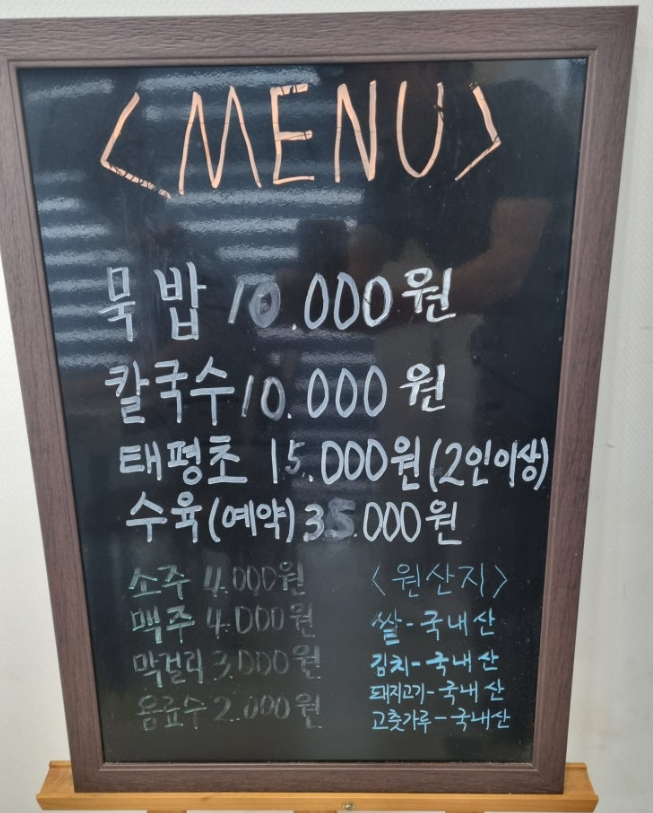 <MENU>
묵밥 10.000원
칼국수 10.000원
태평초 15.000원(2인이상)
수육(예약)35.000원
소주 4.000원
맥주 4.000원
막걸리 3.000원
음료수 2.000원
<원산지>
쌀-국내산
김치-국내산
돼지고기-국내산
고춧가루-국내산